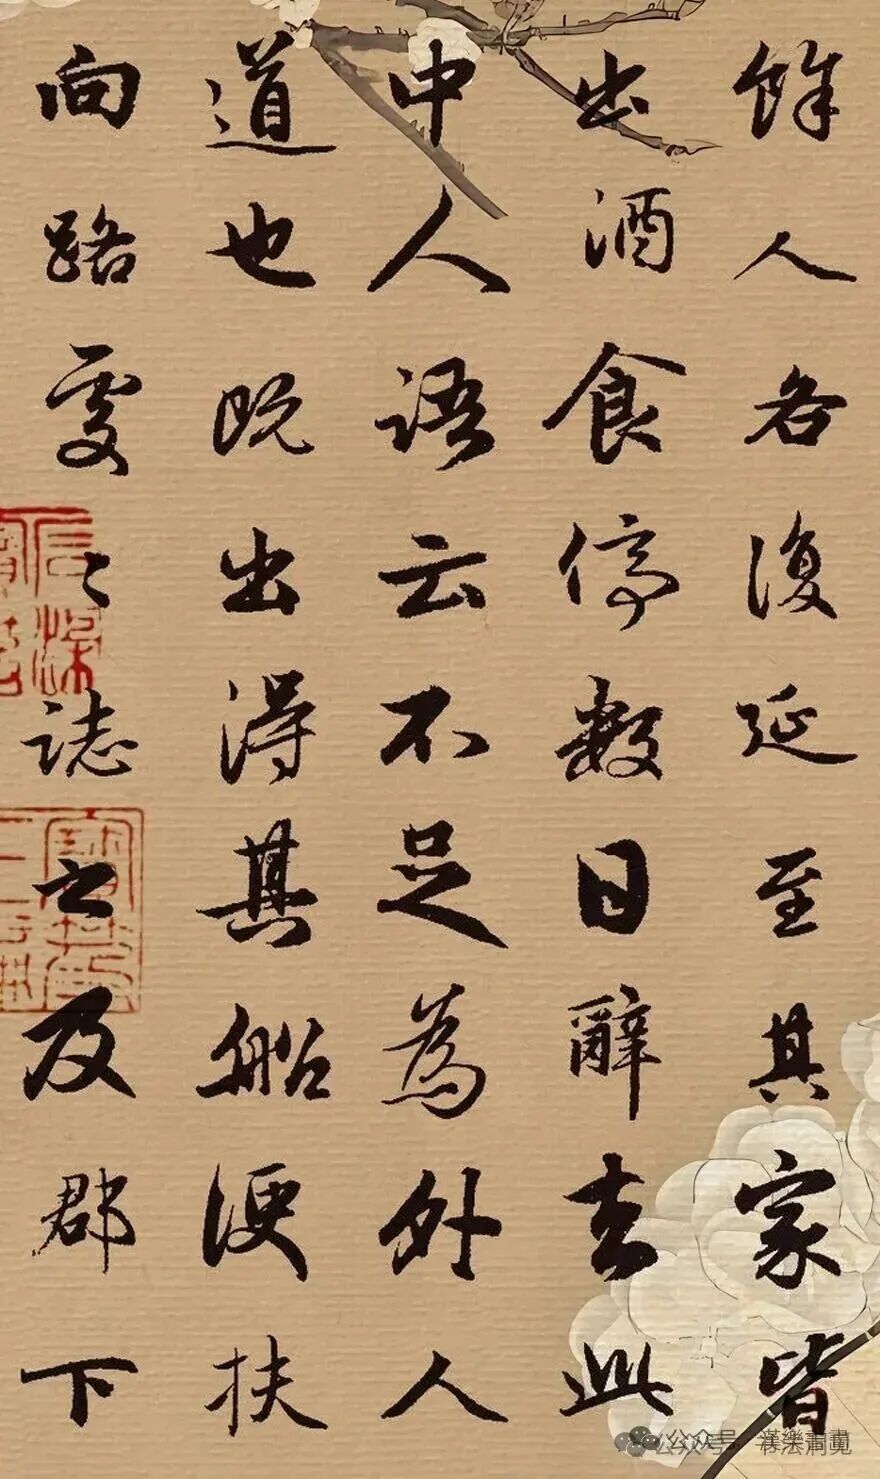 餘人各復延至其家皆
出酒食停數日辭去此
中人語云不足為外人
道也既出得其船便扶
向路處〻誌之及郡下
公众号